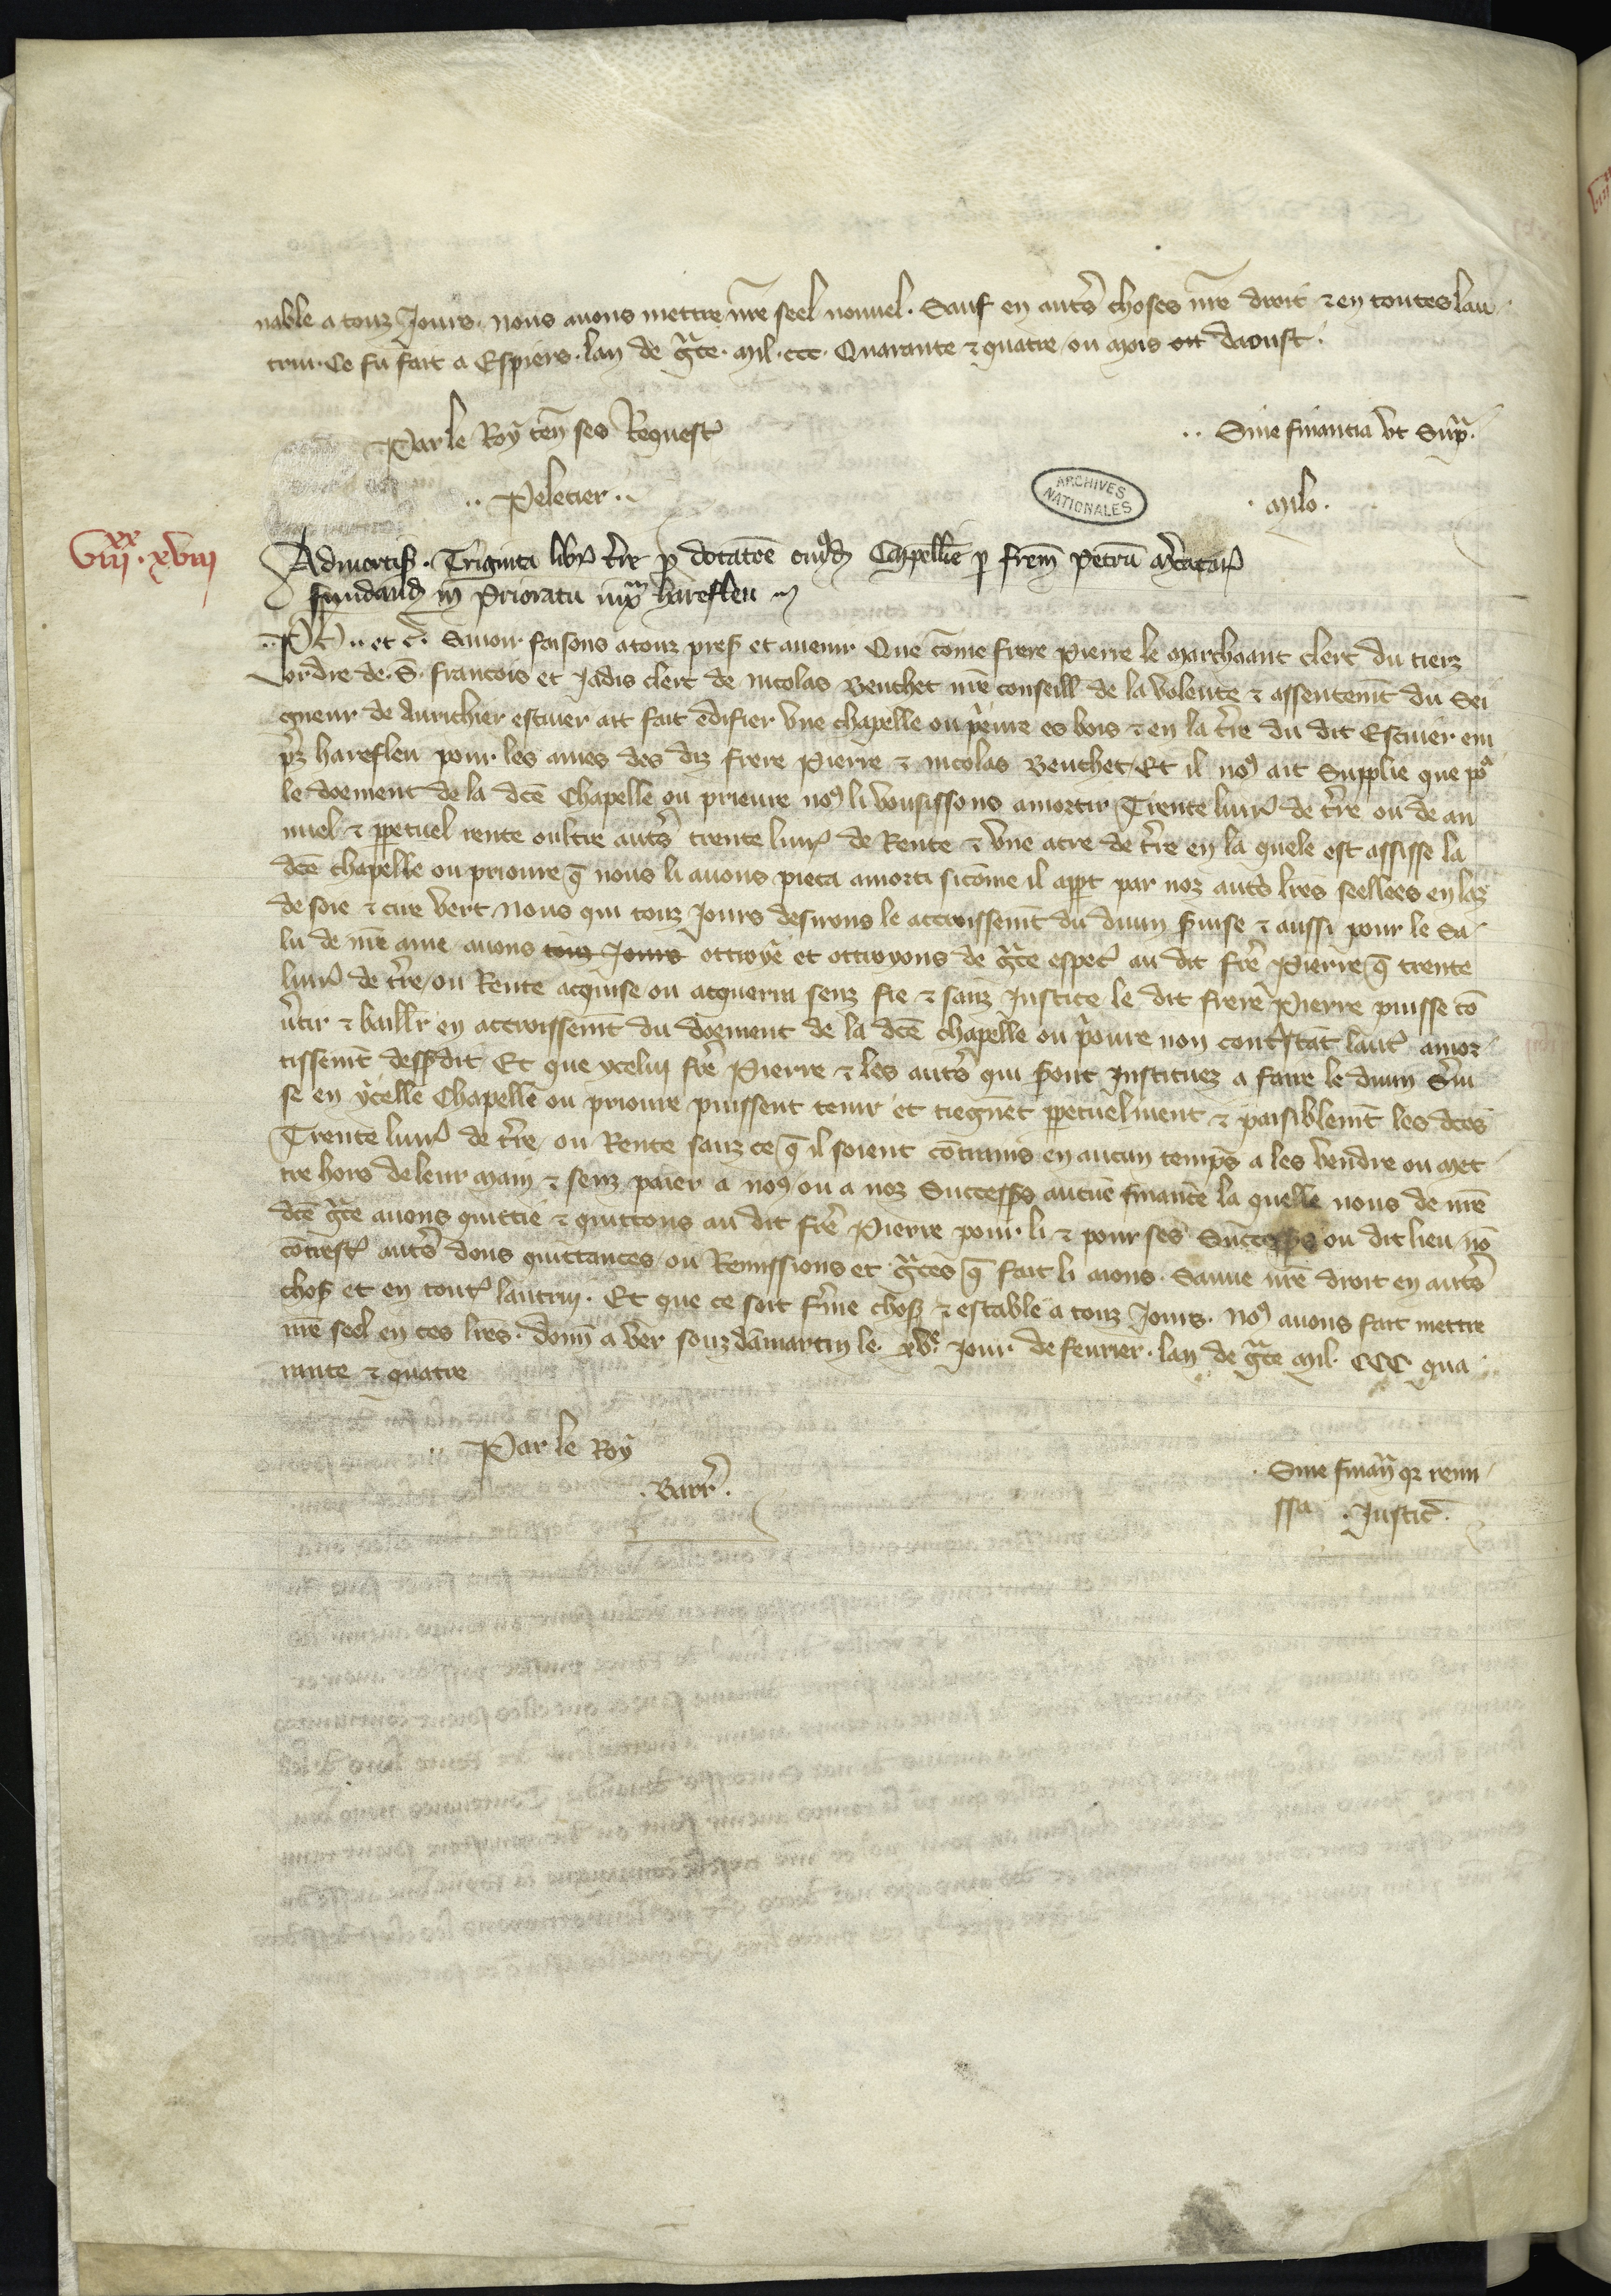 nable a touz Jours. nous avons mettre nre seel nouvel. Sauf en autres choses nre droit & en toutes lau
trui. Ce fu fait a Espiers. lan de grace. mil. ccc. Quarante & quatre ou mois ou daoust.
Par le Roy ten ses Request
.. Sine financia ut supra.
.. Peletier ..
. Milo.
ARCHIVES NATIONALES
VIII xx. xviii
Admortis. Triginta libr terre pro dotacoe cuiusd Capellie per frem Petru
fundand in Prioratu iuxta harefleu
Ph .. et c. Savoir faisons a touz pres et avenir Que come frere Pierre le Marchaant clerc du tierz
ordre de. S. francois et Jadis clerc de nicolas Beuchet nre conseill de la volente & assentemt du Sei
gneur de Aurichier escuier ait fait edifier une chapelle ou prieure es bois & en la terre du dit Escuier em
prez harefleu pour les ames des diz frere Pierre & nicolas Beuchet, Et il nos ait Supplie que por
le doement de la dce Chapelle ou prieure nos li vousissons amortir Trente livres de terre ou de an
nuel & perpetuel rente oultre autres trente livres de Rente & une acre de terre en la quele est assisse la
dce chapelle ou prioure que nous li avons pieca amorti sicome il appt par noz autres lres seellees en laz
de soie & cire vert, Nous qui touz Jours desirons le accroissemt du divin servise & aussi pour le Sa
lu de nre ame avons touz Jours ottroye et ottroyons de grace especial au dit frere Pierre que trente
livres de terre ou Rente acquise ou acquerra senz fie & sanz Justice le dit frere Pierre puisse co
vertir & baillr en accroissemt du doement de la dce chapelle ou prioure non contrestat lautre amor
tissemt dessusdit Et que ycelui frere Pierre & les autres qui seront Instituez a faire le divin servi
se en ycelle Chapelle ou prioure puissent tenir et tiegnet perpetuelment & paisiblemt les dces
Trente livres de terre ou Rente sanz ce que il soient contrains en aucun temps a les vendre ou met
tre hors de leur main & senz paier a nos ou a noz Successrs aucune finance la quelle nous de nre
dce grace avons quittie & quittons au dit frere Pierre pour li & pour ses Successrs ou dit lieu, no
contrest autres dons quittances ou Remissions et graces que fait li aions. Sauve nre droit en autres
chos et en tout lautrui. Et que ce soit ferme chos & estable a touz Jours. nos avons fait mettre
nre seel en ces lres. donn a ver souz damartin le. xve. jour de fevrier. lan de grace mil. CCC qua
rante & quatre
.. Par le Roy
. Barr.
. Sine finan qr remi
ssa . Justic.